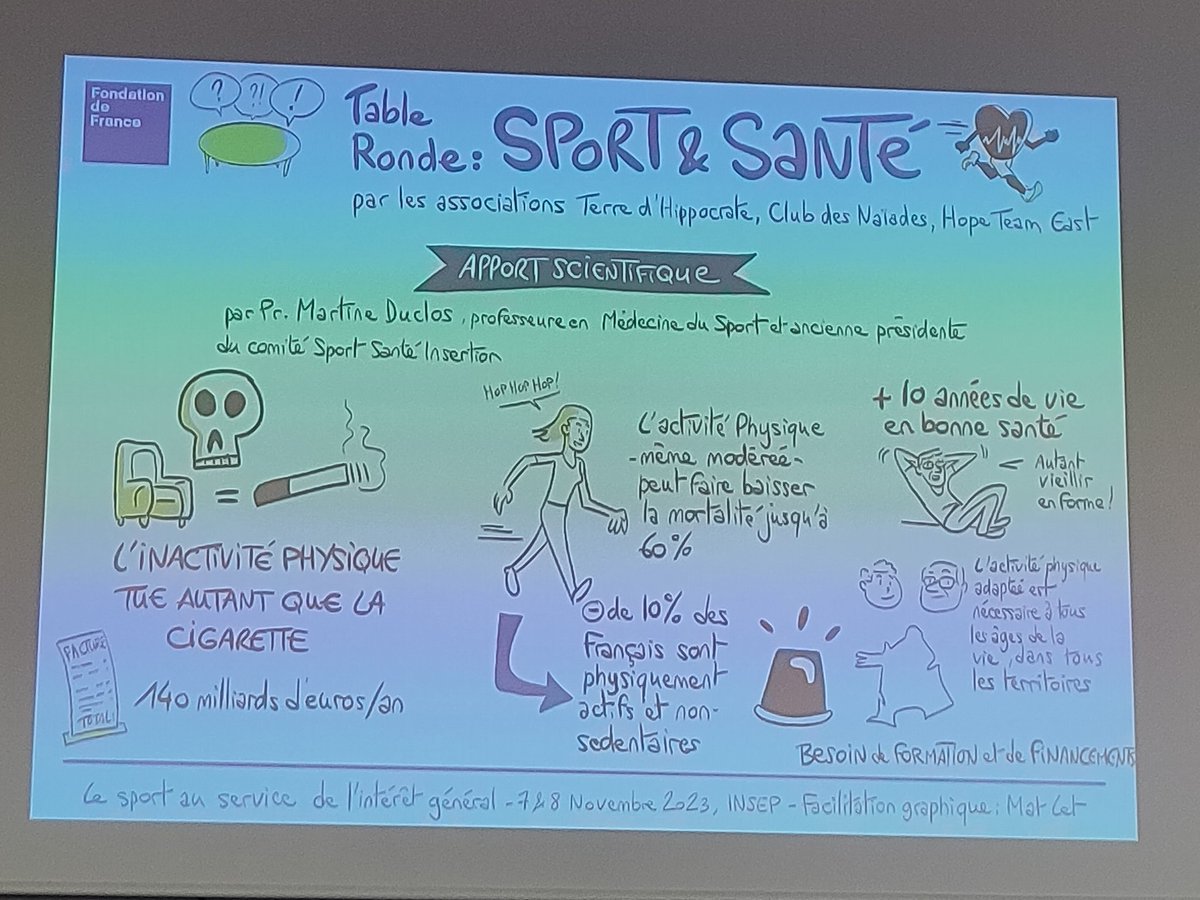 Fondation
de
France
? ?! !
Table
Ronde: SPORT & SANTÉ
par les associations Terre d'Hippocrate, Club des Naïades, Hope Team East
APPORT SCIENTIFIQUE
par Pr. Martine Duclos, professeure en Médecine du Sport et ancienne présidente
du comité Sport Santé Insertion
=
L'INACTIVITÉ PHYSIQUE
TUE AUTANT QUE LA
CIGARETTE
FACTURE
TOTAL!
140 milliards d'euros/an
HOP HOP HOP!
L'activité Physique
-même modérée-
peut faire baisser
la mortalité jusqu'à
60%
⊖ de 10% des
Français sont
physiquement
actifs et non-
sedentaires
+ 10 années de vie
en bonne santé
Autant
vieillir
en forme!
L'activité physique
adaptée est
nécessaire à tous
les âges de la
vie, dans tous
les territoires
BESOIN de FORMATION et de FINANCEMENTS
Le sport au service de l'intérêt général - 7 & 8 Novembre 2023, INSEP - Facilitation graphique: Mat Let